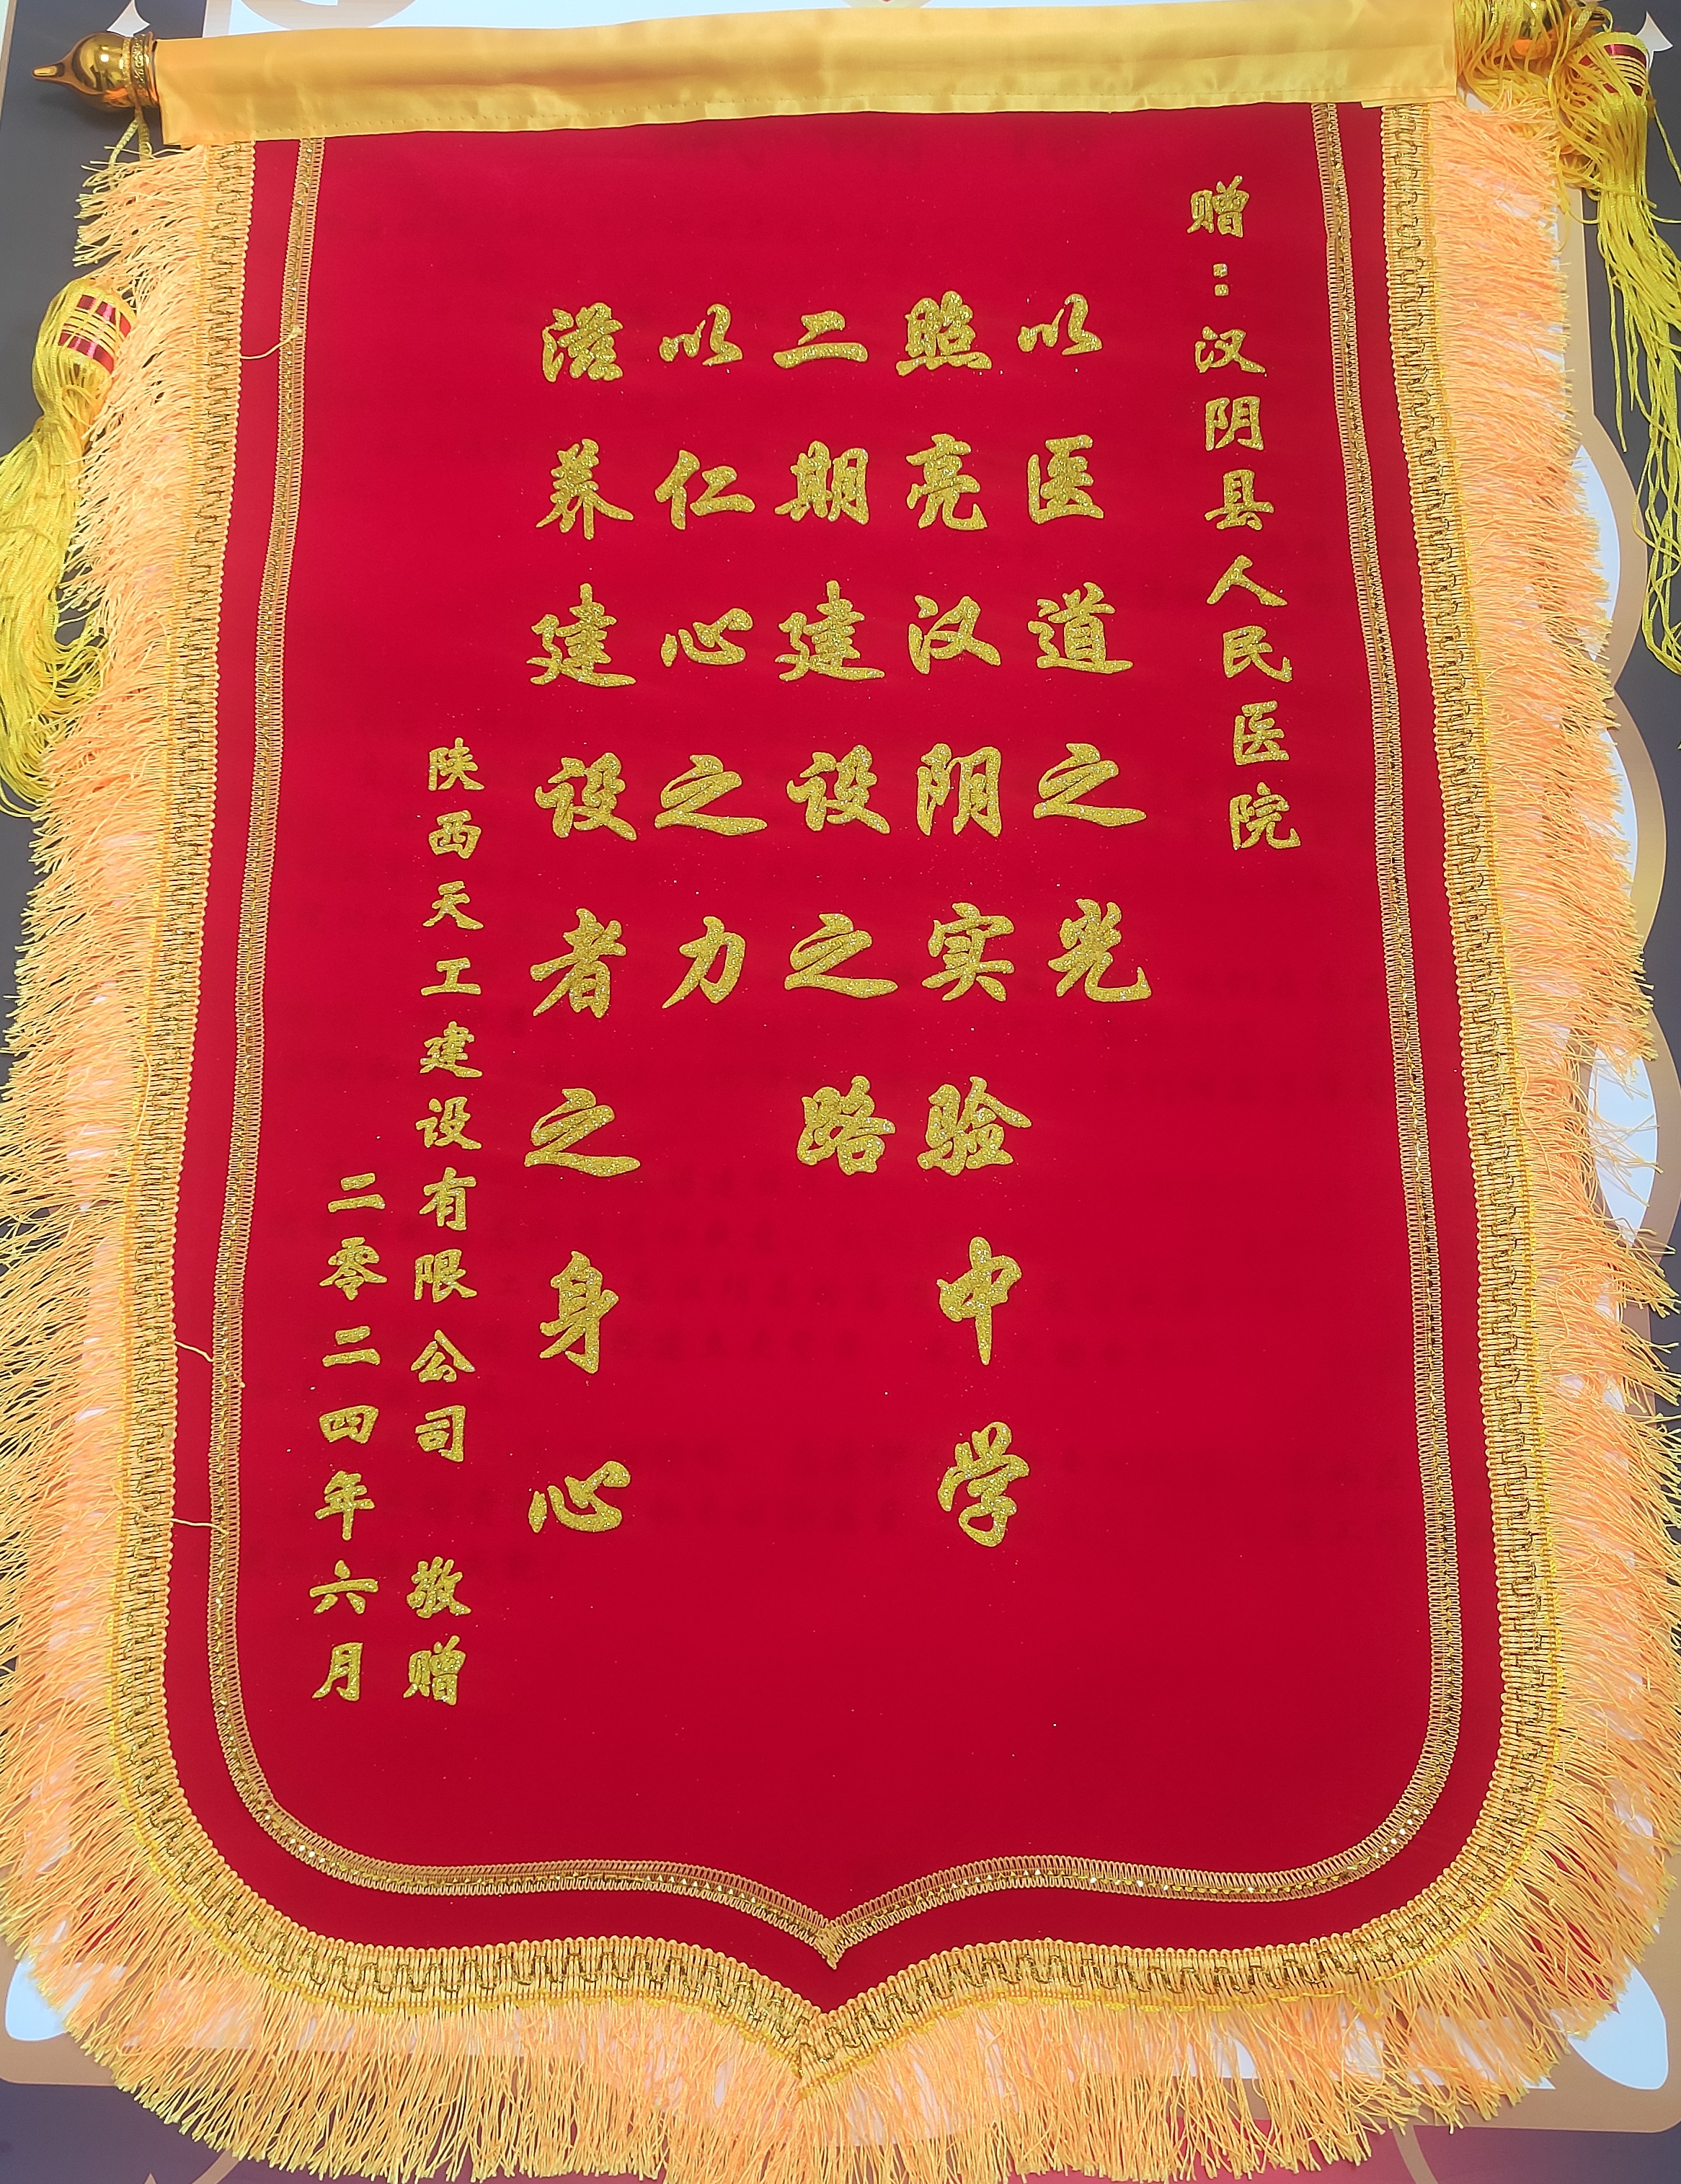 赠：汉阴县人民医院
以医道之光
照亮汉阴实验中学
二期建设之路
以仁心之力
滋养建设者之身心
陕西天工建设有限公司 敬赠
二零二四年六月